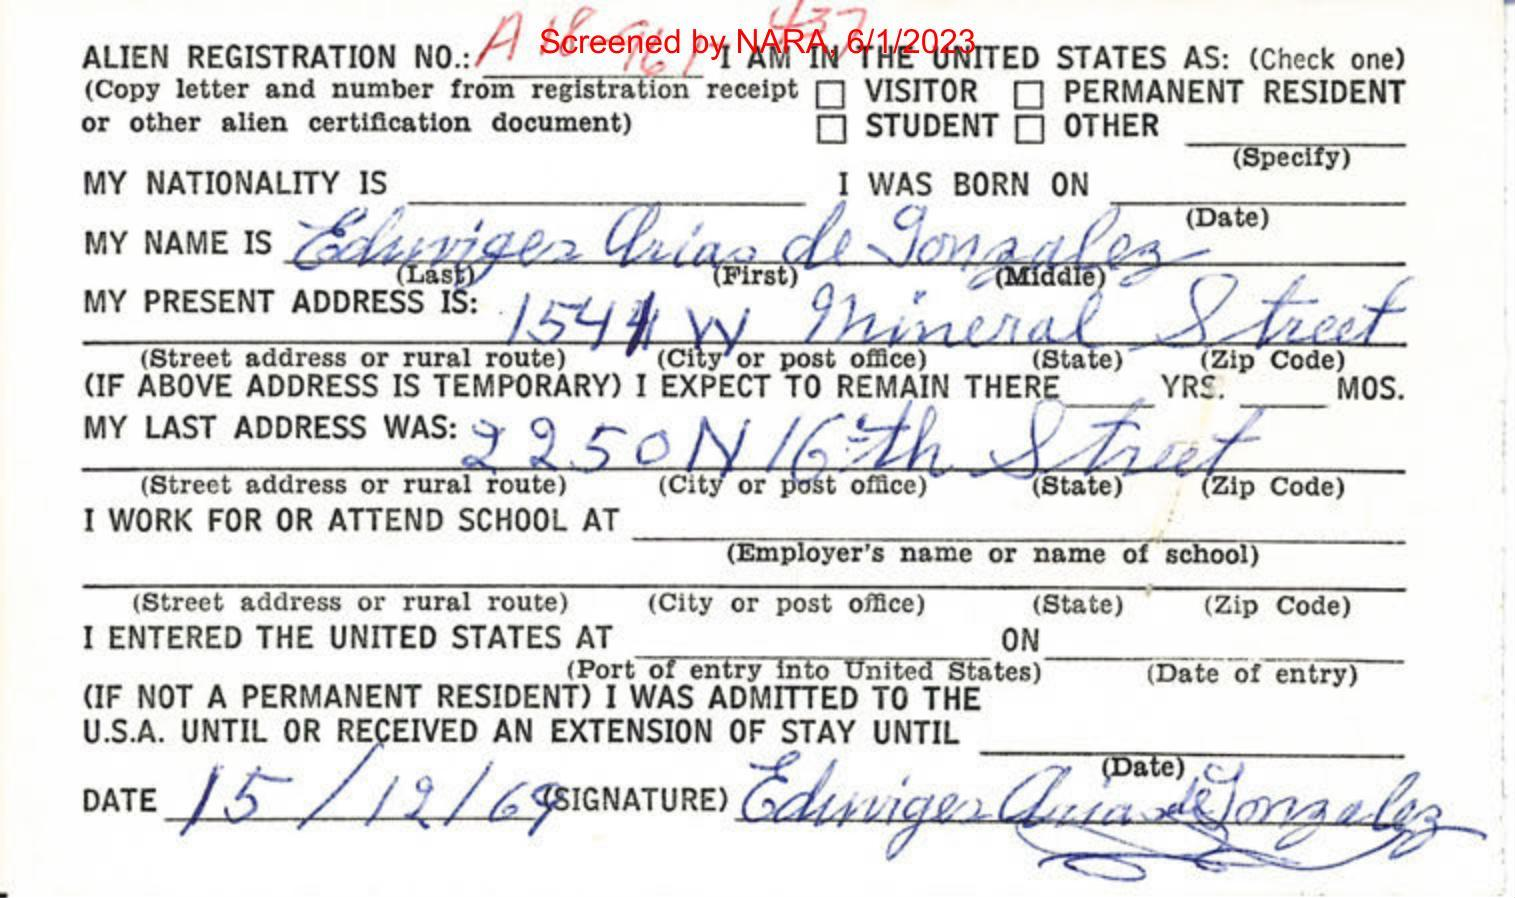 Screened by NARA, 6/1/2023
ALIEN REGISTRATION NO.: A 18 961 437 I AM IN THE UNITED STATES AS: (Check one)
(Copy letter and number from registration receipt ☐ VISITOR ☐ PERMANENT RESIDENT
or other alien certification document) ☐ STUDENT ☐ OTHER
(Specify)
MY NATIONALITY IS I WAS BORN ON
(Date)
MY NAME IS Eduviges Arias de Gonzalez
(Last) (First) (Middle)
MY PRESENT ADDRESS IS: 1541 W Mineral Street
(Street address or rural route) (City or post office) (State) (Zip Code)
(IF ABOVE ADDRESS IS TEMPORARY) I EXPECT TO REMAIN THERE YRS. MOS.
MY LAST ADDRESS WAS: 2250 N 16th Street
(Street address or rural route) (City or post office) (State) (Zip Code)
I WORK FOR OR ATTEND SCHOOL AT
(Employer's name or name of school)
(Street address or rural route) (City or post office) (State) (Zip Code)
I ENTERED THE UNITED STATES AT ON
(Port of entry into United States) (Date of entry)
(IF NOT A PERMANENT RESIDENT) I WAS ADMITTED TO THE
U.S.A. UNTIL OR RECEIVED AN EXTENSION OF STAY UNTIL
(Date)
DATE 15/12/69 (SIGNATURE) Eduviges Arias de Gonzalez